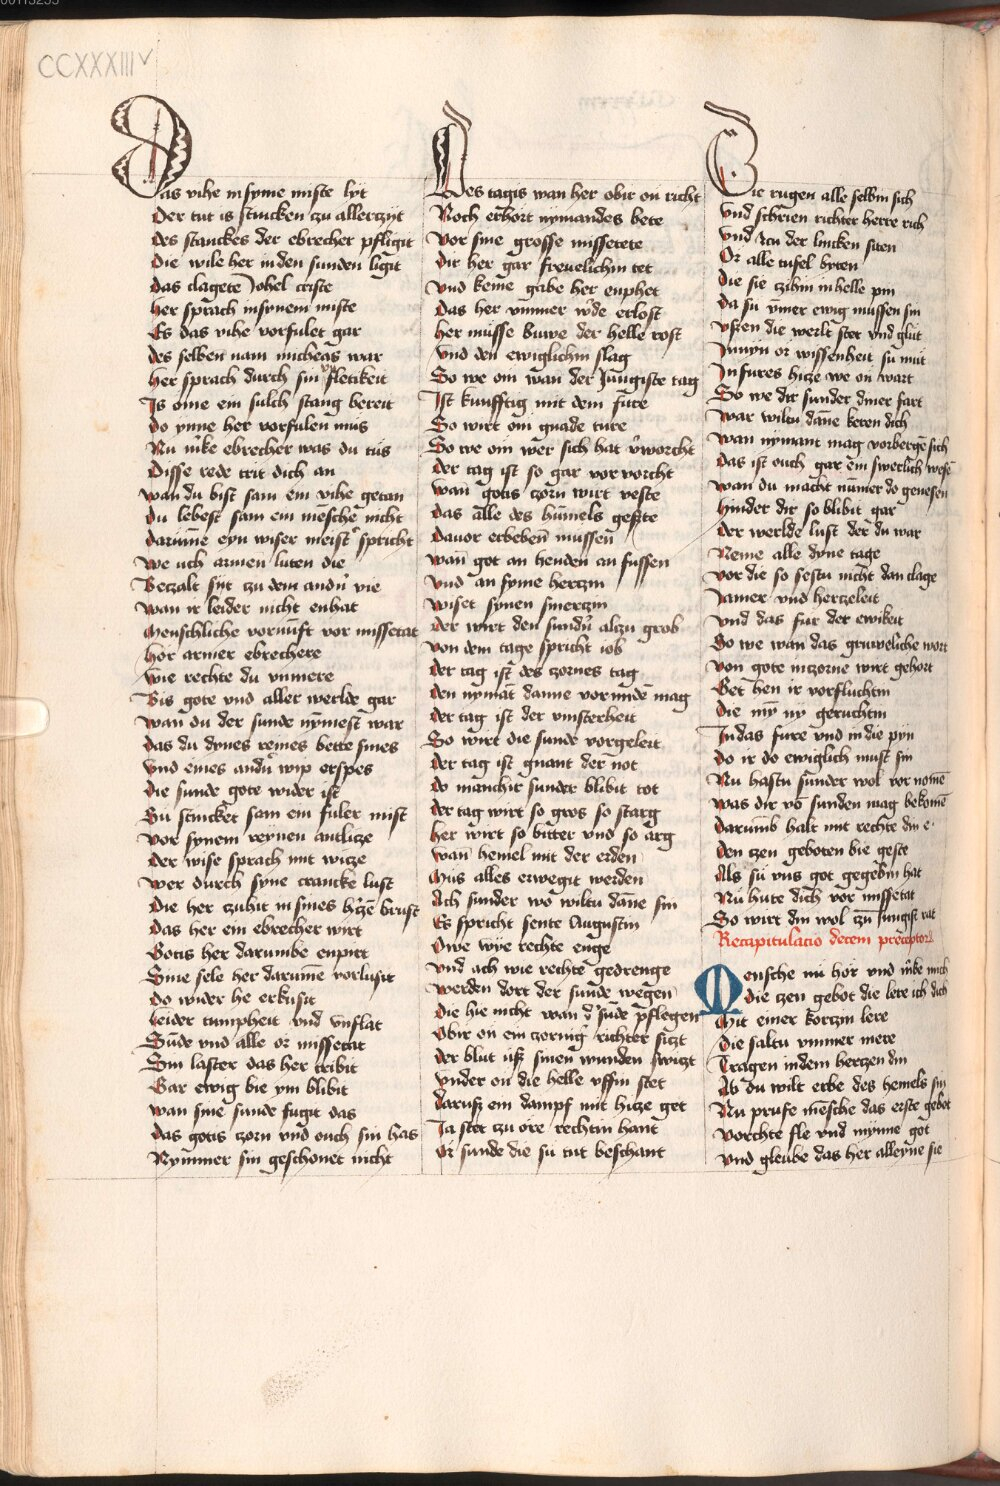 CCXXXIII v
Das vihe in syme miste lyt
Der tut is stincken zu allerzyt
des stanckes der ebrecher pfligit
die wile her in den sunden ligit
das clagete Johel criste
her sprach in synem miste
Es das vihe vorfulet gar
des selben nam micheas war
her sprach durch sin vnfletikeit
Is ome ein sulch stang bereit
do ynne her vorfulen mus
Nu mke ebrecher was du tus
Disse rede trit dich an
wan du bist sam ein vihe getan
du lebest sam ein mesche nicht
darume eyn wiser meister spricht
we uch armen luten die
Bezalt sint zu dem andn vie
wan ir leider nicht enhat
Menschliche vornuft vor missetat
hor armer ebrechere
wie rechte du vnmere
Bis gote vnd aller werlde gar
wan du der sunde nymest war
das du dynes reines bette sines
Vnd eines andn wip erspes
die sunde gote wider ist
Su stincket sam ein fuler mist
vor synem reynen antlicze
der wise sprach mit wicze
wer durch syne crancke lust
die her zuhit in sines hcze brust
das her ein ebrecher wirt
Gotis her darumbe enpirt
Sine sele her darume vorlusit
do wider he erkusit
leider tumpheit vnd vnflat
Sude vnd alle or missetat
Sin laster das her tribit
Gar ewig bie ym blibit
wan sine sunde fugit das
das gotis zorn vnd ouch sin has
Nymmer sin geschonet nicht
Des tagis wan her obir on richt
Noch erhort nymandes bete
vor sine grosse missetete
dir her gar freuelichin tet
vnd keine gabe her enphet
das her vmmer wde erlost
her musse buwe der helle rost
vnd den ewiglichin slag
So we om wan der Jungiste tag
Ist kunfftig mit dem fure
So wirt om gnade ture
So we om wer sich hat vworcht
der tag ist so gar vorvorcht
wan gotis zorn wirt veste
das alle des himels geste
dauor erbeben mussen
wan got an henden an fussen
vnd an syme herczin
wiset synen smerczin
der wirt den sundn alzu grob
von dem tage spricht iob
der tag ist des zornes tag
den nymat danne vormide mag
der tag ist der vinsterheit
So wirt die sunde vorgeleit
der tag ist gnant der not
do manchir sunder blibit tot
der tag wirt so gros so starg
her wirt so bitter vnd so arg
wan hemel mit der erden
Mus alles erwegit werden
Ach sunder wo wiltu dane sin
Es spricht sente Augustin
Owe wye rechte enge
vnd ach wie rechte gedrenge
werden dort der sunde wegen
die hie nicht wan d sude pflegen
Obir on ein zornig richter siczt
der blut uß sinen wunden swiczt
vnder on die helle uffin stet
daruß ein dampf mit hicze get
Ja stet zu ore rechtin hant
Or sunde die su tut beschant
Die rugen alle selbin sich
vnd schrien richter herre rich
vnd zcu der lincken siten
Or alle tufel byten
die sie zihin in helle pin
da su ymer ewig mussen sin
vssen die werlt stet vnd glut
Innyn or wissenheit su mut
In fures hicze we on wart
So we dir sunder diner fart
war wiltu dane keren dich
wan nymant mag vorberge sich
das ist ouch gar ein swerlich wese
wan du macht nummer do genesen
hinder dir so blibit gar
der werlde lust der du war
Neme alle dyne tage
vor die so sestu nicht dan clage
Jamer vnd herczeleit
vnd das fur der ewikeit
So we wan das gruweliche wort
von gote in zorne wirt gehort
Get hen ir vorfluchtin
die my ny geruchtin
In das fure vnd in die pyn
do ir do ewiglich must sin
Nu hastu sunder wol vor nome
was dir vo sunden mag bekome
darumb halt mit rechte din e
den czen geboten bie geste
Als su vns got gegebin hat
Nu hute dich vor missetat
So wirt din wol czu Jungist rat
Recapitulacio decem preceptor
Mensche nu hor vnd mke mich
die czen gebot die lere ich dich
Mit einer korczin lere
die saltu vmmer mere
Tragen in dem herczen din
Ab du wilt erbe des hemels sin
Nu prufe mesche das erste gebot
vorchte fle vnd mynne got
vnd gleube das her alleyne sie